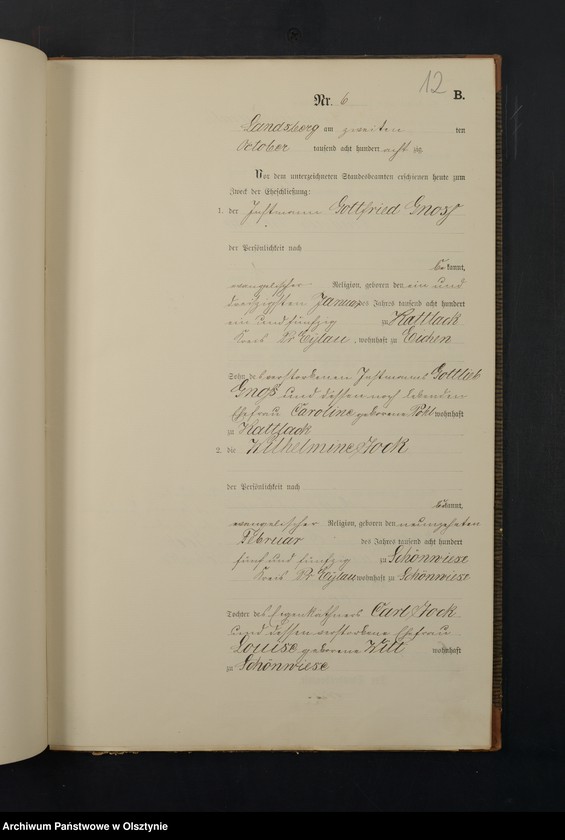 12
Nr. 6 B.
Landsberg am zweiten ten
October tausend acht hundert acht
Vor dem unterzeichneten Standesbeamten erschienen heute zum
Zweck der Eheschließung:
1. der Instmann Gottfried Gnoß
der Persönlichkeit nach
be kannt,
evangelischer Religion, geboren den ein und
dreizigsten Januar des Jahres tausend acht hundert
ein und fünfzig zu Kattlack
Kreis Pr Eylau, wohnhaft zu Eichen
Sohn des verstorbenen Instmanns Gottlieb
Gnoß und dessen noch lebenden
Ehefrau Caroline geborene wohnhaft
zu Kattlack
2. die Wilhelmine
der Persönlichkeit nach
be kannt,
evangelischer Religion, geboren den neunzehnten
Februar des Jahres tausend acht hundert
fünf und fünfzig zu Schönwiese
Kreis Pr Eylau wohnhaft zu Schönwiese
Tochter des Carl
und dessen verstorbene Ehefrau
Louise geborene Witt wohnhaft
zu Schönwiese
Archiwum Państwowe w Olsztynie